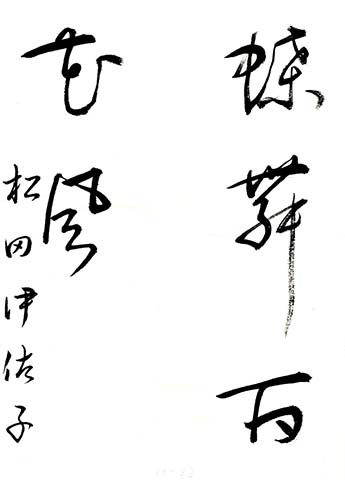 蝶舞百
花風
松田伊佐子